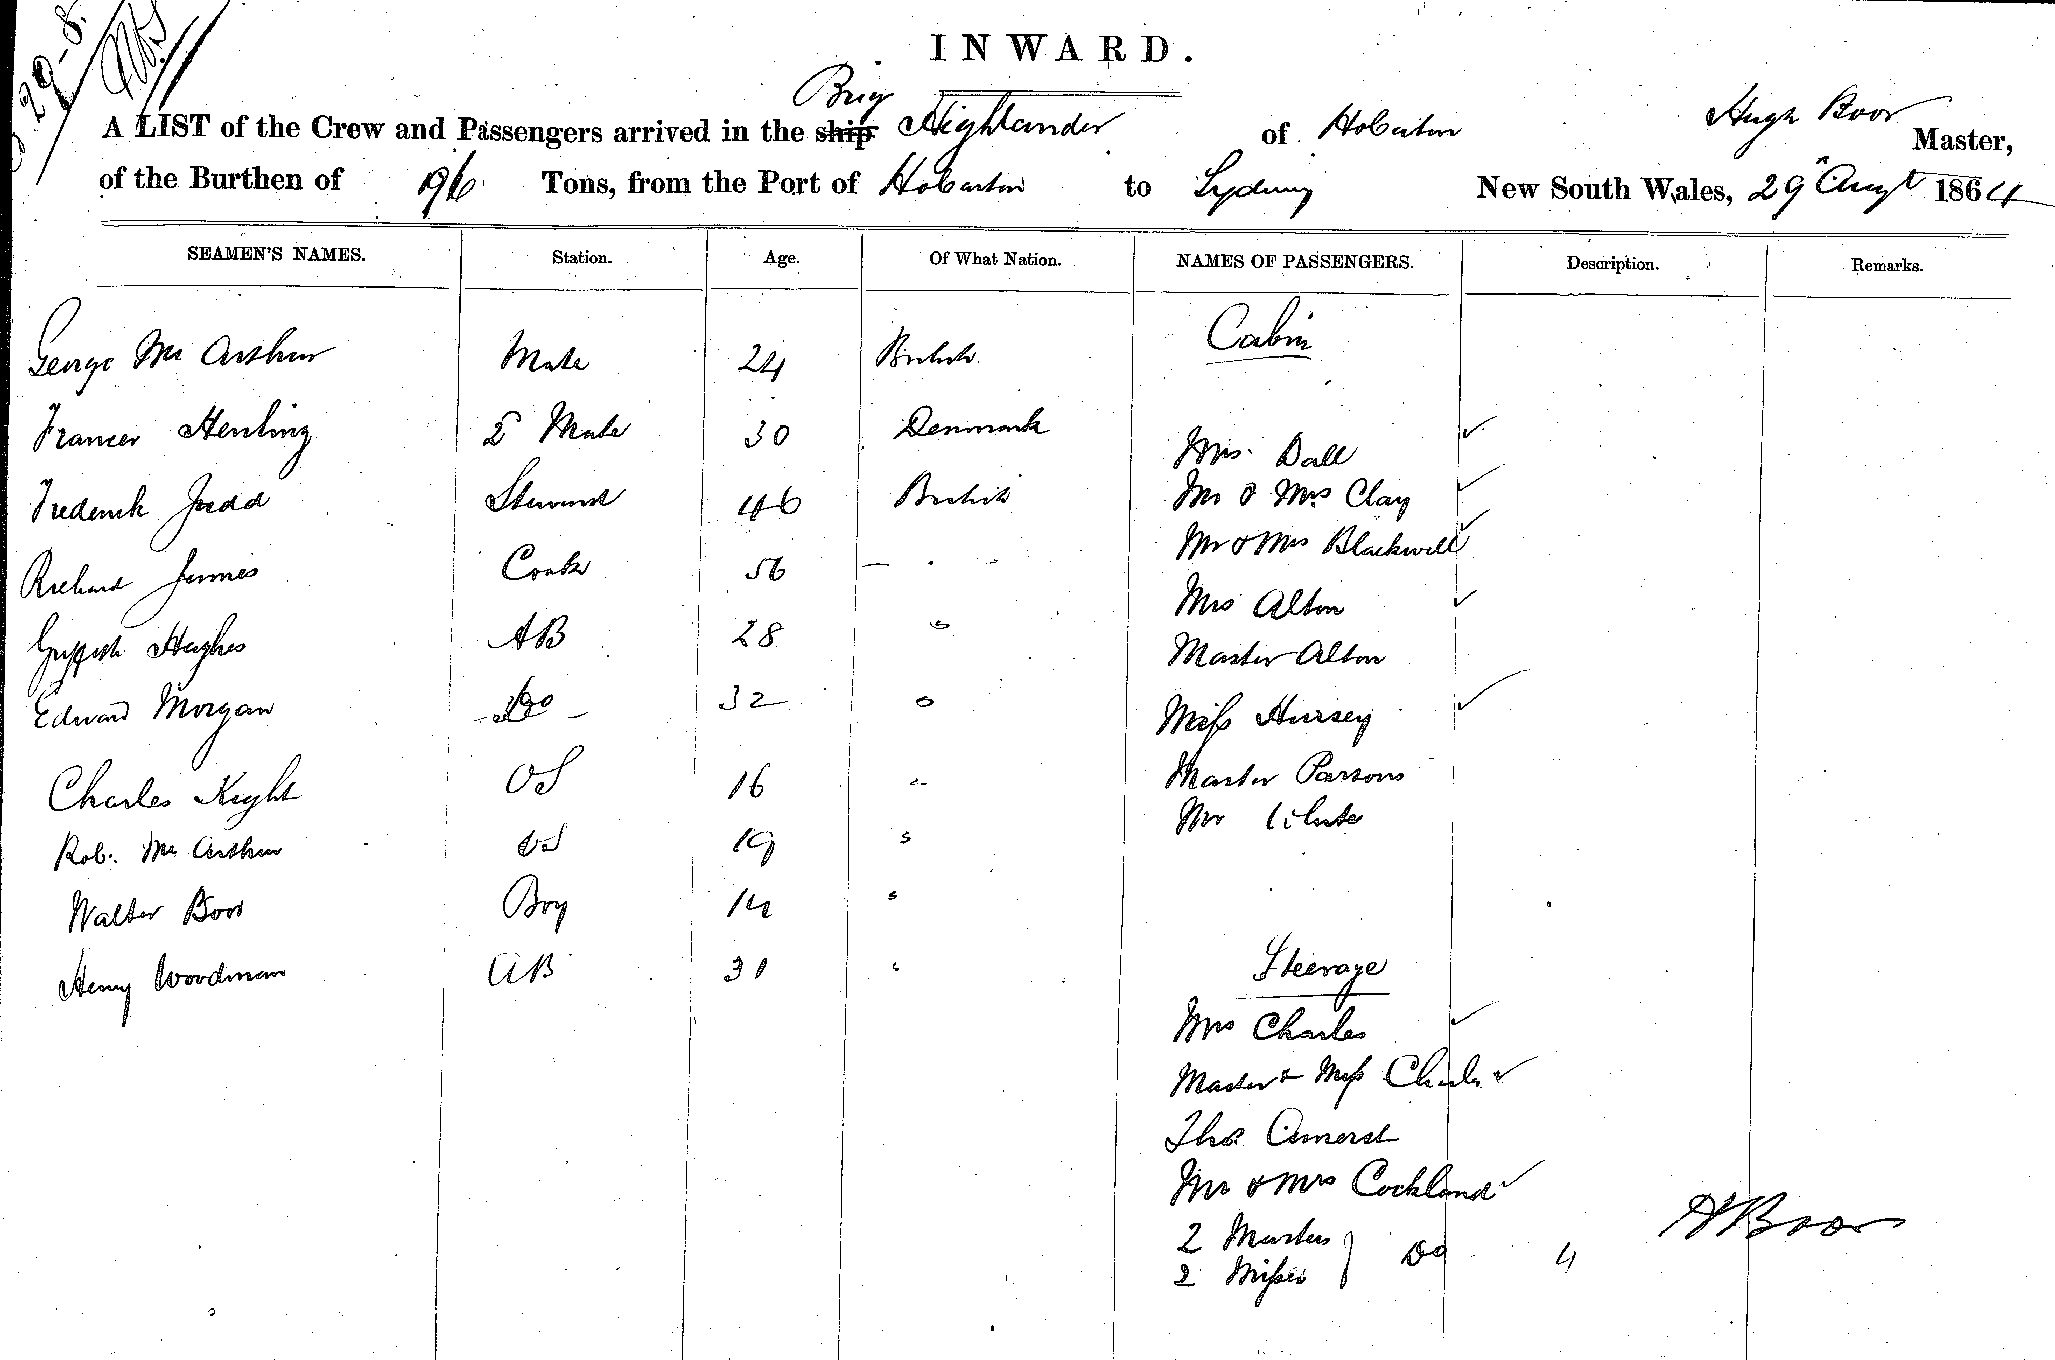 29-8
INWARD.
Brig
A LIST of the Crew and Passengers arrived in the ship Highlander of Hobarton Hugh Boor Master,
of the Burthen of 196 Tons, from the Port of Hobarton to Sydney New South Wales, 29 Augt 1864
SEAMEN'S NAMES. Station. Age. Of What Nation. NAMES OF PASSENGERS. Description. Remarks.
Cabin
George Mc Arthur Mate 24 British
Frances 2 Mate 30 Denmark
Mrs. Dall
Frederick Judd Steward 46 British Mr & Mrs Clay
Mr & Mrs Blackwell
Richard James Cook 56
Mrs Alton
Griffith Hughes AB 28 Master Alton
Edward Morgan Do 32 Miss Hursey
Charles Kight OS 16 Master Parsons
Mr
Rob. Mc Arthur OS 19
Walter Boor Boy 14
Henry Woodman AB 30 Steerage
Mrs Charles
Master & Miss Charles
Thos Amerst
Mr & Mrs Cockland
2 Masters } Do 4 H Boor
2 Misses